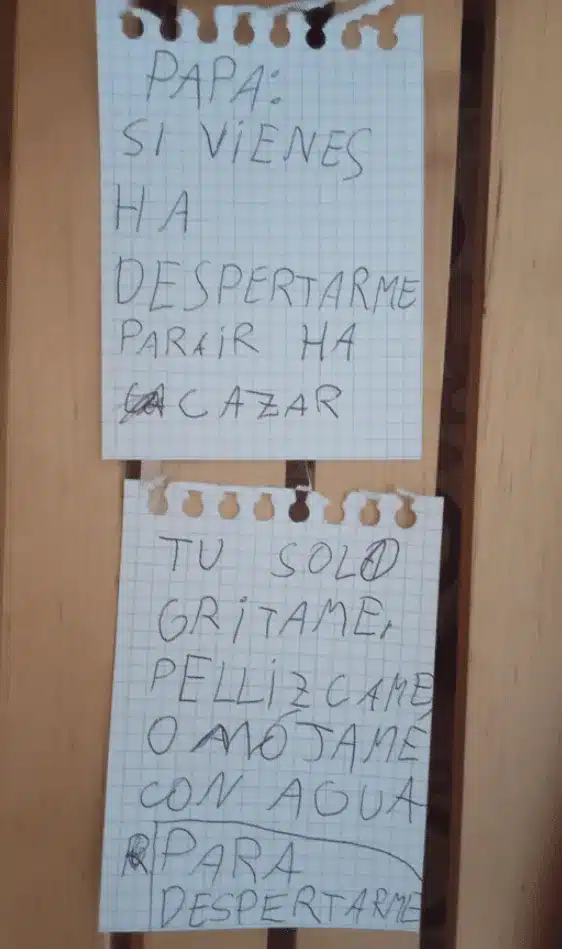 PAPA:
SI ViENES
HA
DESPERTARME
PARAiR HA
CAZAR
TU SOLO
GRiTAME,
PELLiZCAME
O MÓJAMÉ
CON AGUA
PARA
DESPERTARME